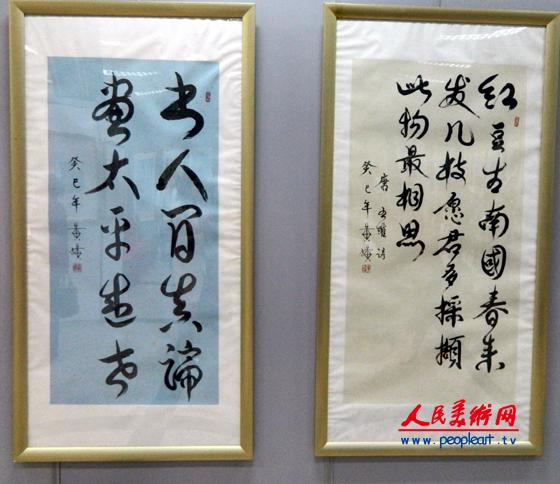 书人间真谛
畫太平盛世
癸巳年
红豆生南國春来
发几枝愿君多採撷
此物最相思
唐 王维诗
癸巳年
人民美術网
www.peopleart.tv